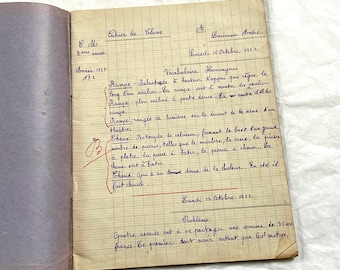 Cahier de Classe
C. M.
2ème année
Lucienne André
Samedi 12 Octobre 1957
Année 1957-
1958
Vocabulaire Homonymes
Rampe: Balustrade à hauteur d'appui qui règne le
long d'un escalier. La rampe sert à monter les escaliers.
Rampe: plan incliné à pente douce.
Rampe: rangée de lumières sur le devant de la scène d'un
théâtre.
Chaux: Protoxyde de calcium, formant la base d'un grand
nombre de pierres, telles que le marbre, la craie, la pierre
à plâtre, la pierre à bâtir, la pierre à chaux. La
chaux sert à bâtir.
Chaud: Qui a ou donne de la chaleur. En été il
fait chaud.
B
Lundi 14 Octobre 1957
Problème
Quatre associés ont à se partager une somme de
francs. Le premier doit avoir autant que les autres,